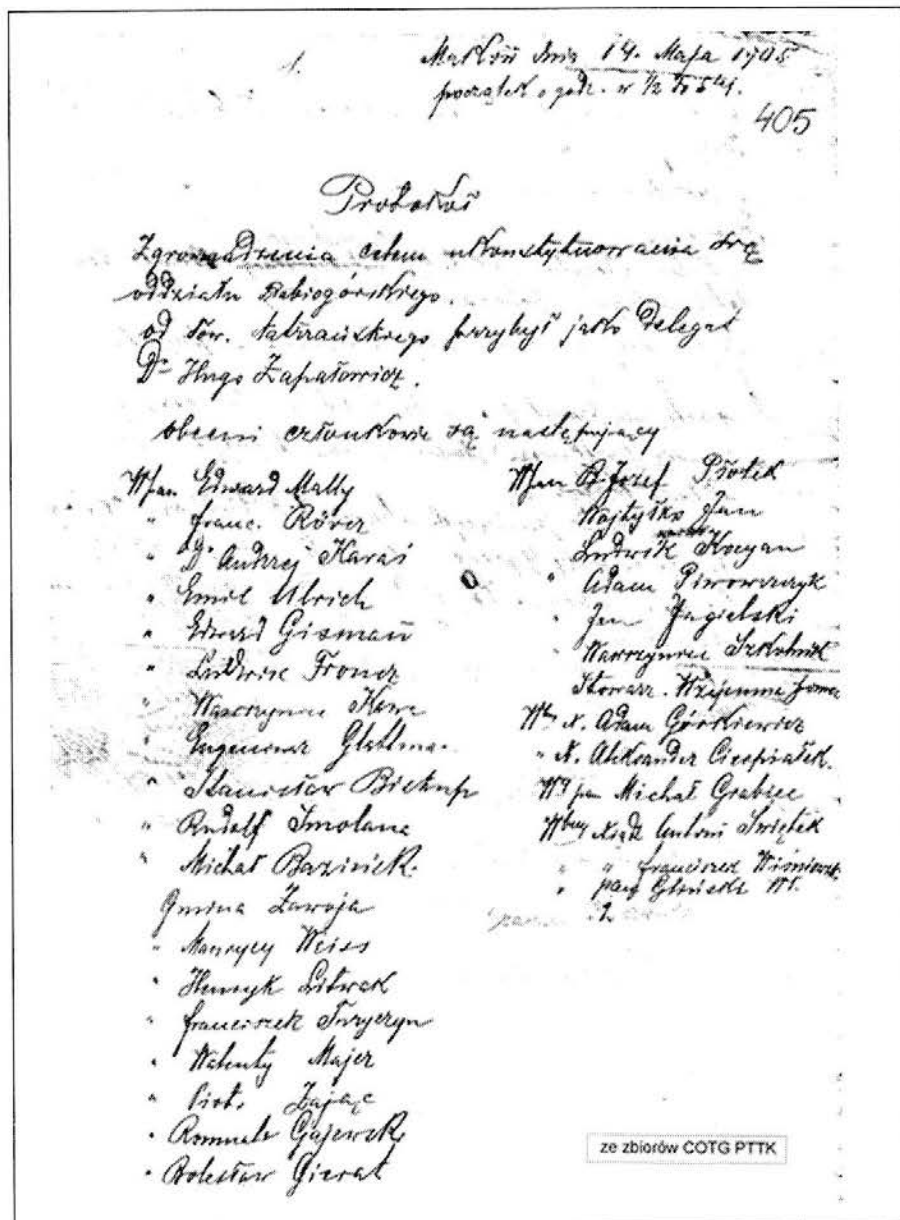 1.
Maków dnia 14. Maja 1905
początek o godz. w 1/2 do 5tej.
405
Protokół
Zgromadzenia celem ukonstytuowania się
oddziału Babiogórskiego.
od Tow. Tatrzańskiego przybył jako Delegat
Dr Hugo Zapałowicz.
obecni członkowie są następujący
Wpan Edward Mally
" franc. Röver
" Dr Andrzej Karaś
" Emil Ulrich
" Edward Gisman
" Ludwik Froncz
" Wawrzyniec
" Eugeniusz
" Stanisław Biekup
" Rudolf Smolana
" Michał
Gmina Zawoja
" Maurycy Weiss
" Henryk Litwak
" franciszek
" Walenty Majer
" Piotr Zając
" Romuald Gajewski
" Bolesław Gierat
Wpan Józef Płotek
Wojtyłko Jan
Ludwik Kocyan
" Adam Piwowarczyk
" Jan Jagielski
" Wawrzyniec Szkolnik
Stowarz. Wzajemna
X. Adam Górkiewicz
" X. Aleksander Cierpiałek.
pan Michał Grabiec
Ksiądz Antoni Świętek
" " franciszek
" pan
ze zbiorów COTG PTTK